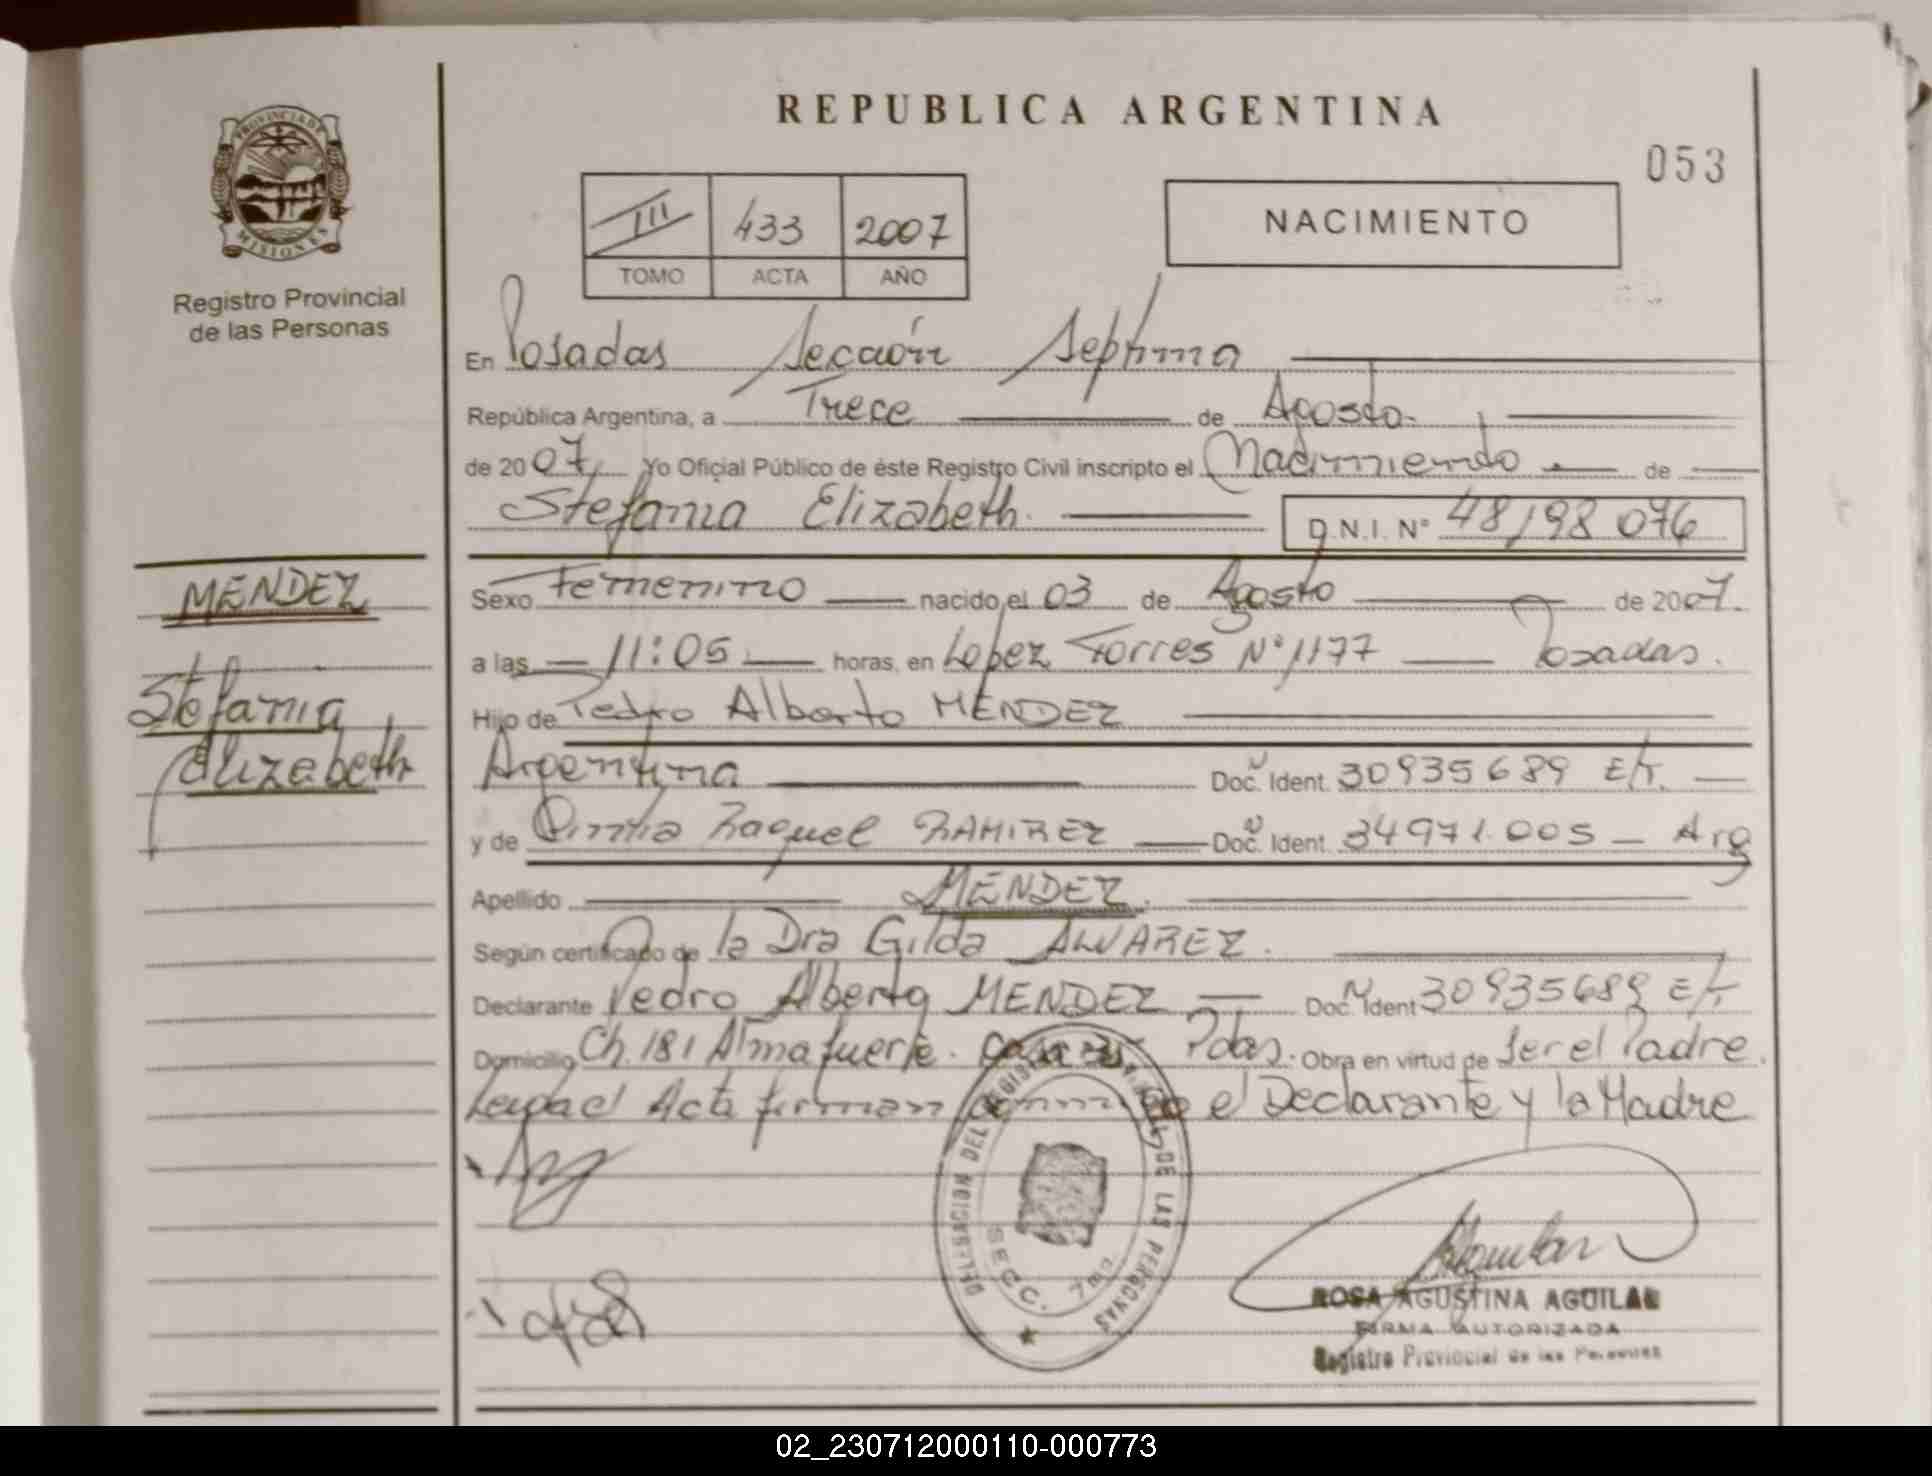 REPUBLICA ARGENTINA
053
PROVINCIA DE
MISIONES
Registro Provincial
de las Personas
III 433 2007
TOMO ACTA AÑO
NACIMIENTO
En Posadas Sección Septima
República Argentina, a Trece de Agosto.
de 2007 Yo Oficial Público de éste Registro Civil inscripto el Nacimiento de
Stefania Elizabeth. D.N.I. N° 48198076
MENDEZ
Stefania
Elizabeth
Sexo Femenino nacido el 03 de Agosto de 2007.
a las 11:05 horas, en Lopez Torres N° 1177 Posadas.
Hijo de Pedro Alberto MENDEZ
Argentina Doc. Ident. 30935689 E/T.
y de Cintia Raquel RAMIREZ Doc. Ident. 34971.005 - Arg
Apellido MENDEZ.
Según certificado de la Dra Gilda ALVAREZ.
Declarante Pedro Alberto MENDEZ Doc. Ident 30935689 E/T
Domicilio Ch. 181 Almafuerte. Pdas. Obra en virtud de Ser el Padre.
Leida el Acta firman conmigo el Declarante y la Madre
DELEGACION DEL REGISTRO DE LAS PERSONAS
SECC. 7ma
ROSA AGUSTINA AGUILAR
FIRMA AUTORIZADA
Registro Provincial de las Personas
02_230712000110-000773